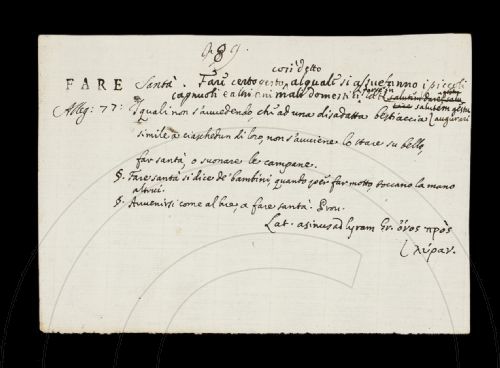 989.
così detto
FARE Santà. Fare certo gesto, al quale si assuefanno i piccoli
cagnuoli e altri animali domestici,
salutem gestu
Alleg: 77: I quali non s'avvedendo, ch' ad una disadatta bestiaccia augurari
simile a ciaschedun di loro, non s'avviene lo stare su bello,
far santà, o suonare le campane.
§. Fare santà si dice de' bambini, quando per far motto toccano la mano
altrui.
§. Avvenirsi come al bue, a fare santà. Prov.
Lat. asinus ad lyram Gr. ὄνος πρὸς
λύραν.